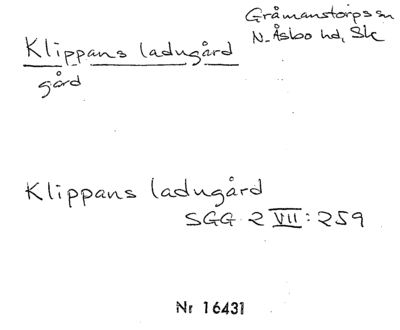 Gråmanstorps sn
N. Åsbo hd, Sk
Klippans ladugård
gård
Klippans ladugård
SGG 2 VII: 259
Nr 16431